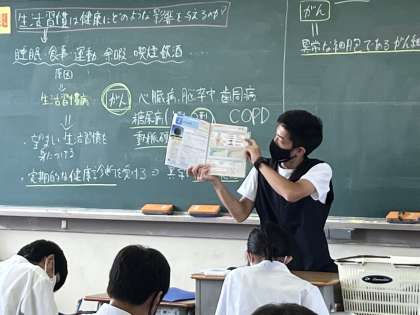 生活習慣は健康にどのような影響を与えるか?
睡眠 食事 運動 余暇 喫煙 飲酒 ……
原因
→生活習慣病
がん 心臓病 脳卒中 歯周病
糖尿病 COPD
動脈硬
望ましい生活習慣を
身につける
・定期的な健康診断を受ける
がん
異常な細胞であるがん細